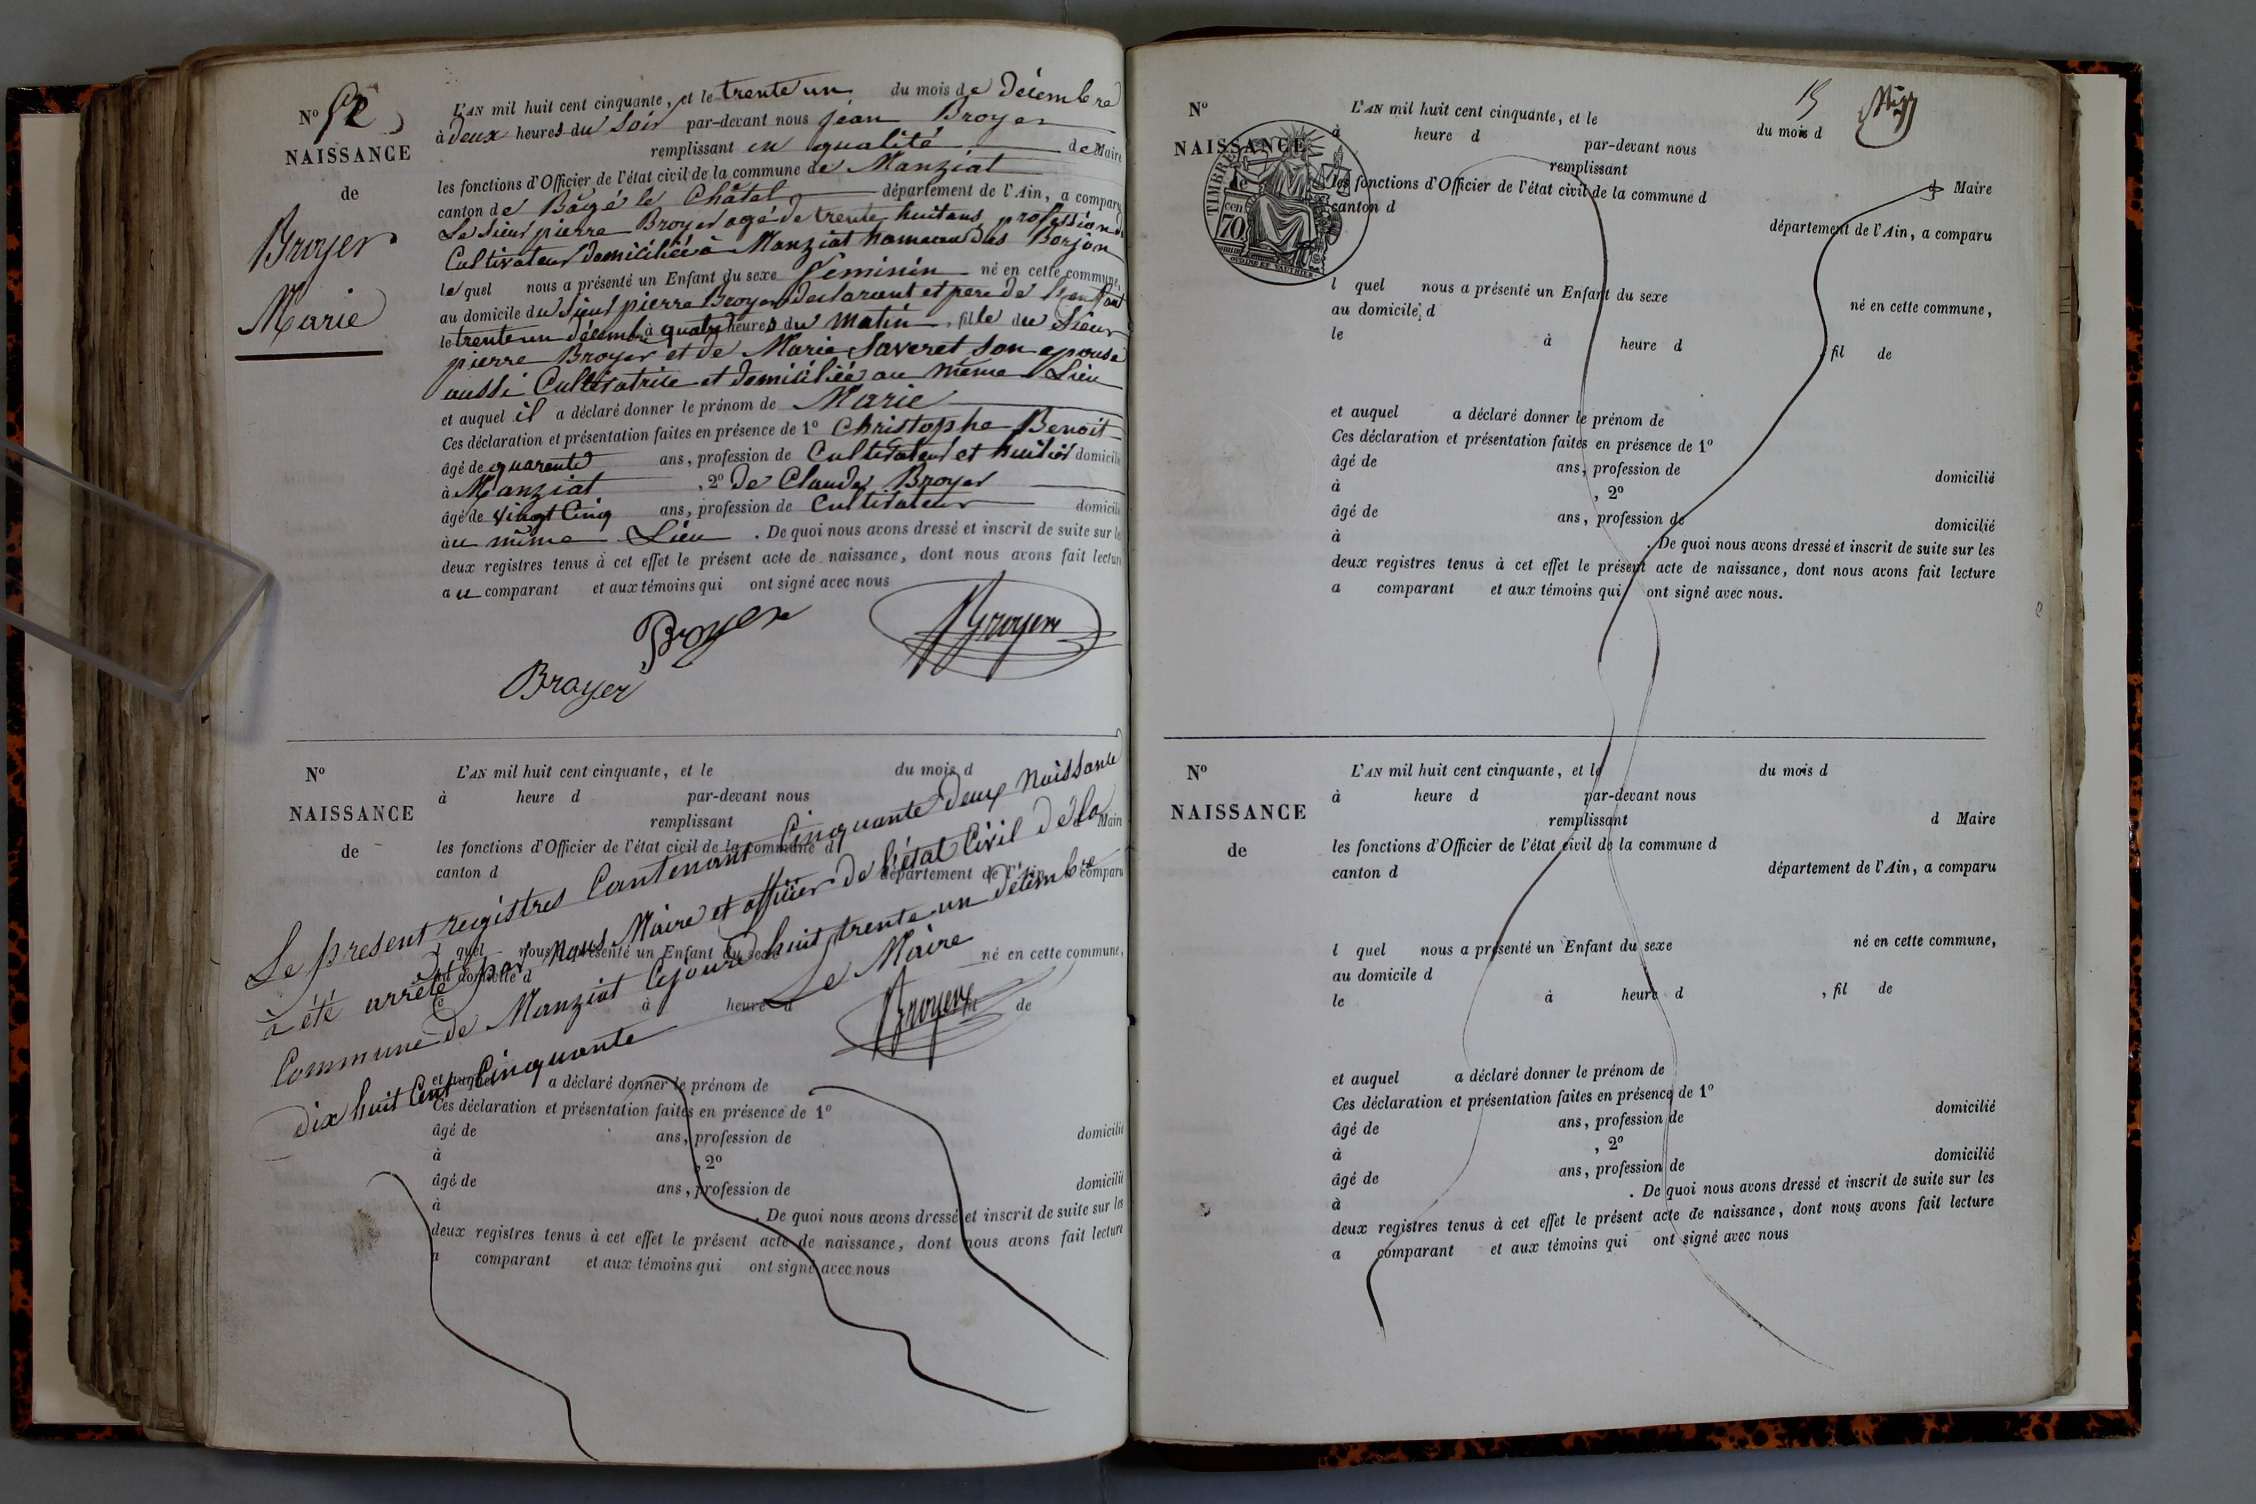 No 52
NAISSANCE
de
Broyer
Marie
L'AN mil huit cent cinquante, et le trente un du mois de Décembre
à deux heures du Soir par-devant nous jean Broyer
remplissant en qualité de Maire
les fonctions d'Officier de l'état civil de la commune de Manziat
canton de Bâgé le Châtel département de l'Ain, a comparu
Le Sieur pierre Broyer agé de trente huit ans profession de
Cultivateur domiciliée à Manziat hameau des Borjon
le quel nous a présenté un Enfant du sexe Feminin né en cette commune,
au domicile du Sieur pierre Broyer declarant et pere de l'enfant
le trente un décembre à quatre heures du Matin, fille du Sieur
pierre Broyer et de Marie Saveret son epouse
aussi Cultivatrice et domiciliée au même Lieu
et auquel il a déclaré donner le prénom de Marie
Ces déclaration et présentation faites en présence de 1o Christophe Benoit
âgé de quarente ans, profession de Cultivateur et huilier domicilié
à Manziat, 2o de Claude Broyer
âgé de vingt Cinq ans, profession de Cultivateur domicilié
au même Lieu. De quoi nous avons dressé et inscrit de suite sur les
deux registres tenus à cet effet le présent acte de naissance, dont nous avons fait lecture
au comparant et aux témoins qui ont signé avec nous
Broyer
Broyer
Broyer
No
NAISSANCE
de
L'AN mil huit cent cinquante, et le du mois d
à heure d par-devant nous
remplissant d Maire
les fonctions d'Officier de l'état civil de la commune d
canton d département de l'Ain, a comparu
l quel nous a présenté un Enfant du sexe né en cette commune,
au domicile d
le à heure d, fil de
et auquel a déclaré donner le prénom de
Ces déclaration et présentation faites en présence de 1o
âgé de ans, profession de domicilié
à, 2o
âgé de ans, profession de domicilié
à. De quoi nous avons dressé et inscrit de suite sur les
deux registres tenus à cet effet le présent acte de naissance, dont nous avons fait lecture
a comparant et aux témoins qui ont signé avec nous
Le present registres Contenant Cinquante deux Naissance
à été arrêté par nous Maire et officier de l'état Civil de la
Commune de Manziat Cejourd'huit trente un décembre
Dix huit Cent Cinquante
Le Maire
Broyer
15
TIMBRE
70
cen
No
NAISSANCE
L'AN mil huit cent cinquante, et le du mois d
à heure d par-devant nous
remplissant d Maire
les fonctions d'Officier de l'état civil de la commune d
canton d département de l'Ain, a comparu
l quel nous a présenté un Enfant du sexe né en cette commune,
au domicile d
le à heure d, fil de
et auquel a déclaré donner le prénom de
Ces déclaration et présentation faites en présence de 1o
âgé de ans, profession de domicilié
à, 2o
âgé de ans, profession de domicilié
à. De quoi nous avons dressé et inscrit de suite sur les
deux registres tenus à cet effet le présent acte de naissance, dont nous avons fait lecture
a comparant et aux témoins qui ont signé avec nous.
No
NAISSANCE
de
L'AN mil huit cent cinquante, et le du mois d
à heure d par-devant nous
remplissant d Maire
les fonctions d'Officier de l'état civil de la commune d
canton d département de l'Ain, a comparu
l quel nous a présenté un Enfant du sexe né en cette commune,
au domicile d
le à heure d, fil de
et auquel a déclaré donner le prénom de
Ces déclaration et présentation faites en présence de 1o
âgé de ans, profession de domicilié
à, 2o
âgé de ans, profession de domicilié
à. De quoi nous avons dressé et inscrit de suite sur les
deux registres tenus à cet effet le présent acte de naissance, dont nous avons fait lecture
a comparant et aux témoins qui ont signé avec nous